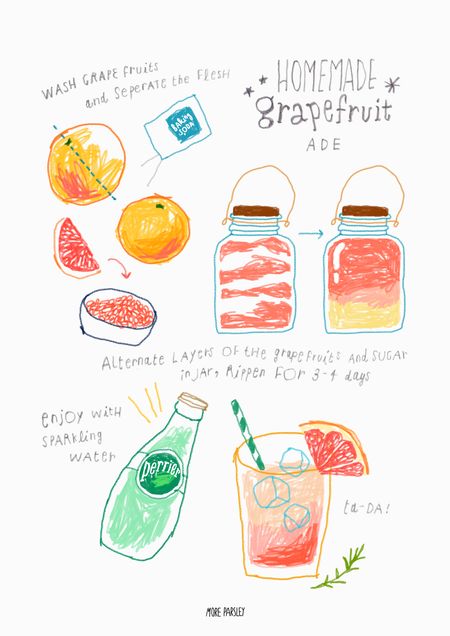 HOMEMADE
grapefruit
ADE
WASH GRAPE fruits
and SEPERATE the FLESH
BAKING
SODA
Alternate LAYERS OF the grapefruits AND SUGAR
in jar, Rippen FOR 3-4 days
enjoy with
SPARkling
WATER
perrier
ta-DA!
MORE PARSLEY